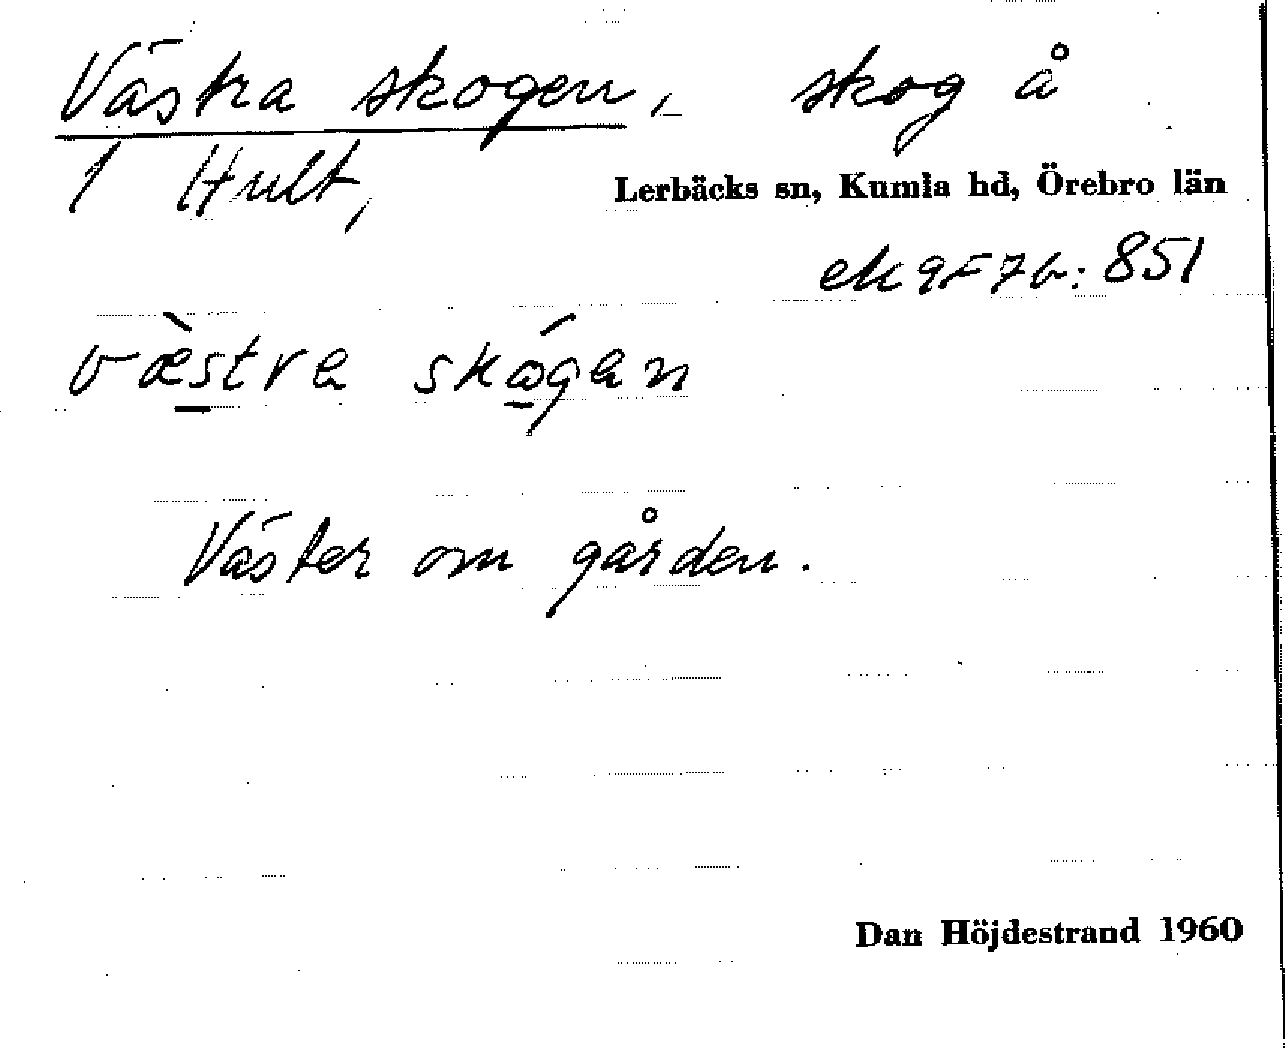 Västra skogen, skog å
1 Hult,
Lerbäcks sn, Kumla hd, Örebro län
ek 9F7b: 851
væ̀stra skógan
Väster om gården.
Dan Höjdestrand 1960